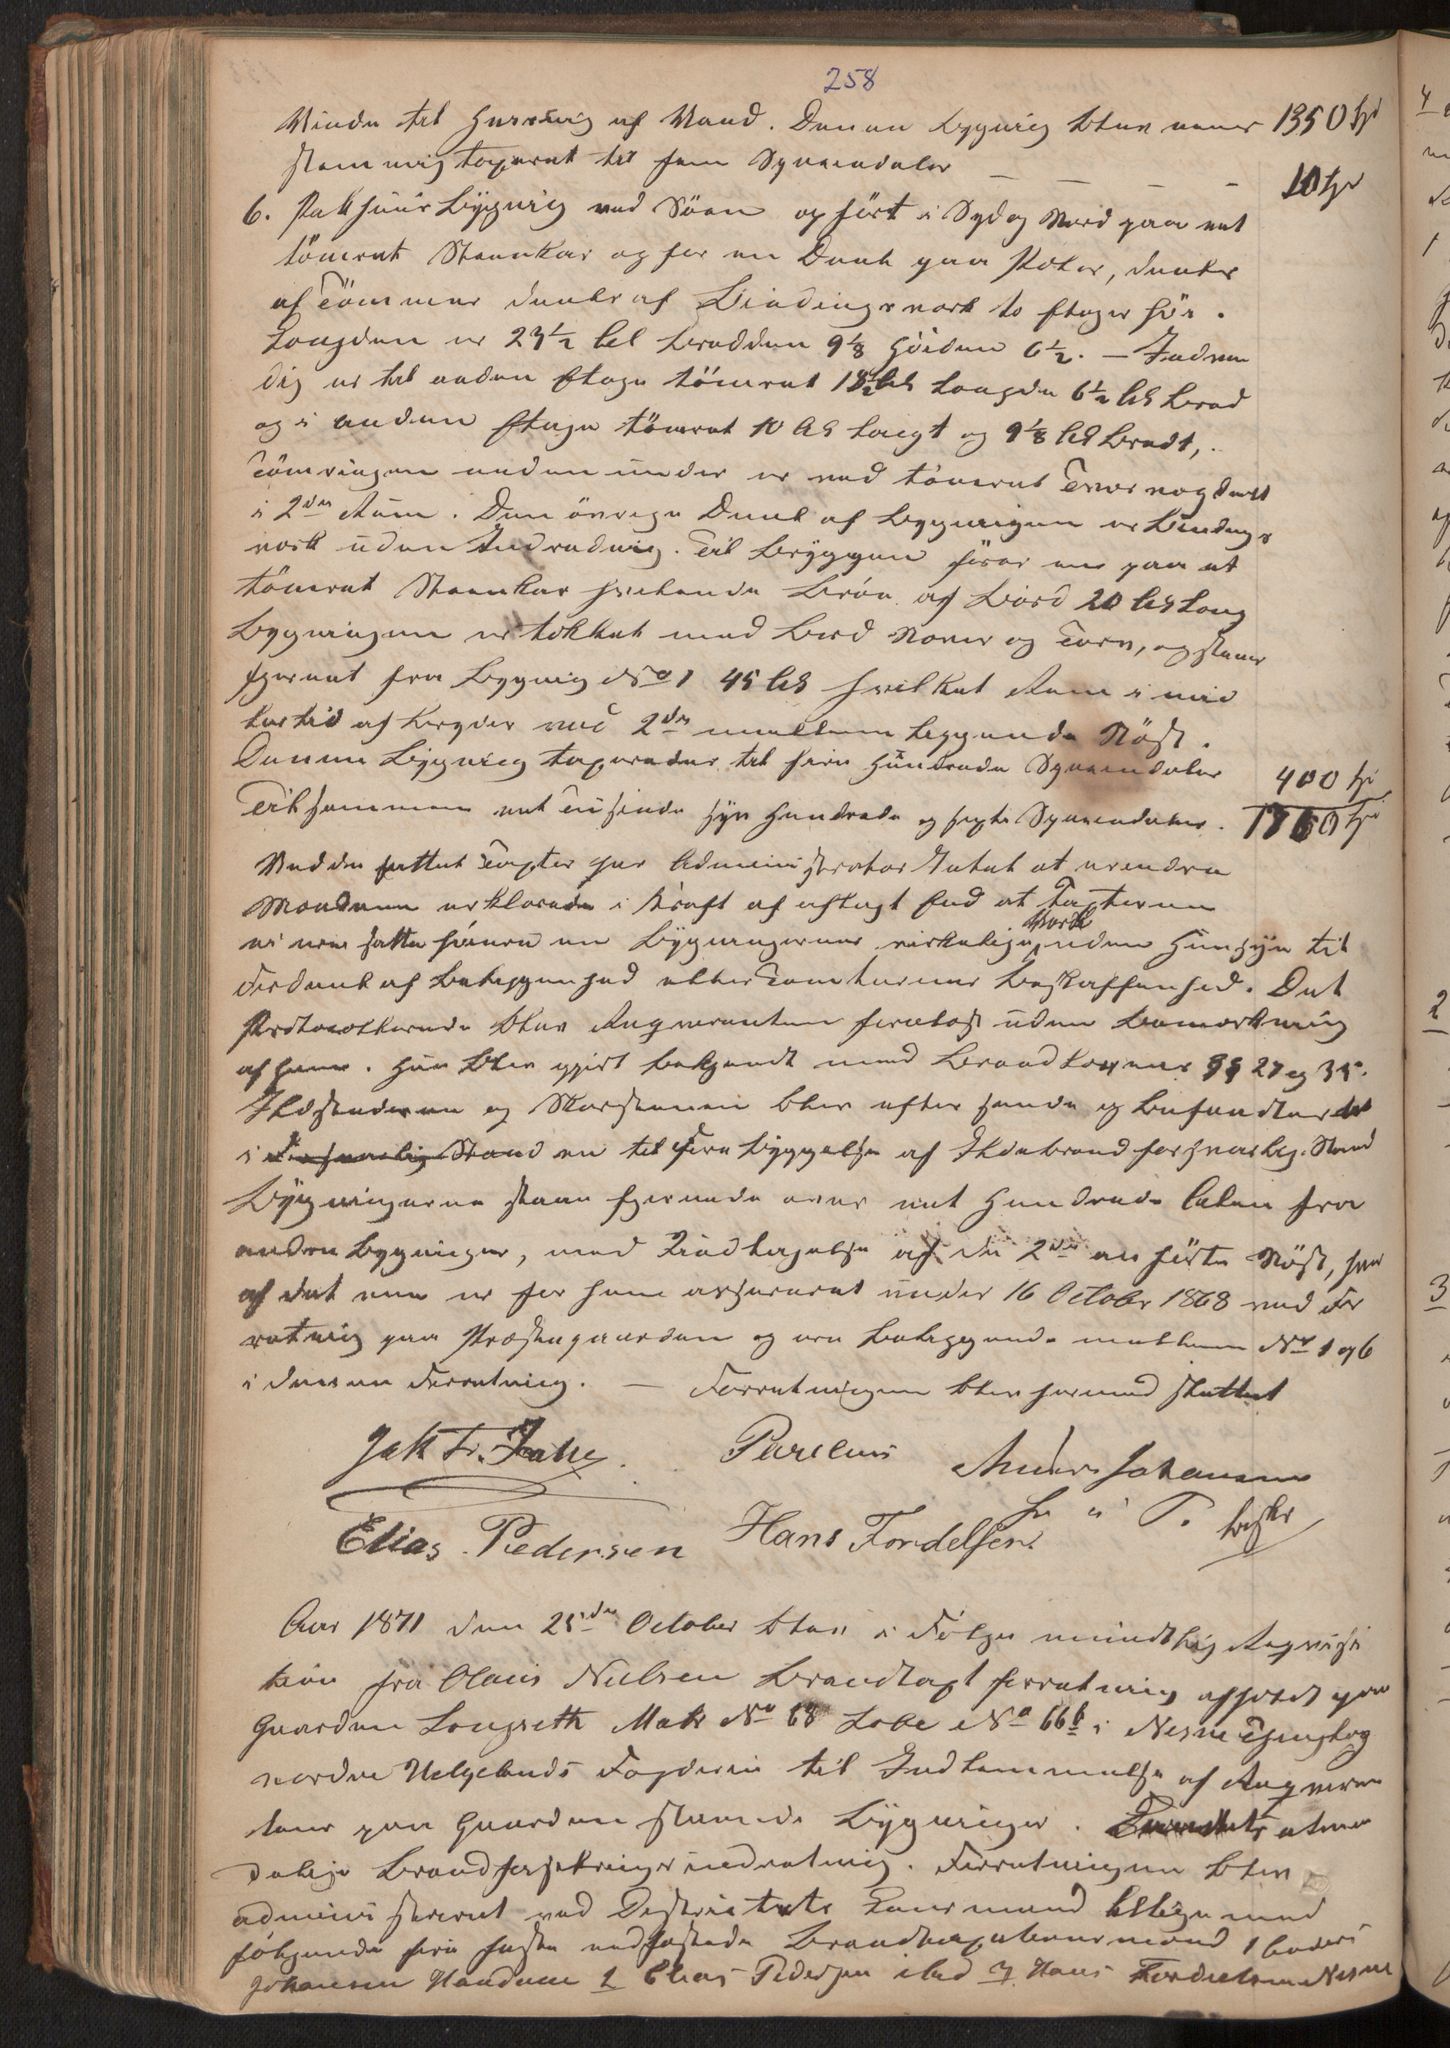 258
Vinde til Heisning af Vand. Denne Bygning blev ener 1350 Spd
stemmig taxeret til fem Speciedaler — — — — 10 Spd
6. Pakhuus Bygning ved Søen opført i Syd og Nord paa eet
tømret Steenkar og for en Deel paa Peler, deels
af Tømmer deels af Bindingsverk to Etager høi.
Længden er 23½ Al Bredden 9⅛ Høiden 6½. — Indven
dig er til anden Etage tømret 18½ Al Længde 6½ Al Bred
og i anden Etage tømret 10 Al langt og 9⅛ Al bredt,
Tømringen nedenunder er ved tømret Tvervæg deelt
i 2de Rum. Den øvrige Deel af Bygningen er Bindings
verk uden Indredning. Til Bryggen hører en paa et
tømret Steenkar hvilende Broe af Bord 20 Al lang
Bygningen er tækket med Bord Næver og Torv, og staaer
fjernet fra Bygning No 1 45 Al hvilket Rum i mid
lertid af brydes ved 2de mellem liggende Nøst.
Denne Bygning taxeredes til fire Hundrede Speciedaler 400 Spd
Tilsammen eet Tusinde syv Hundrede og sexti Speciedaler. 1760 Spd
Ved den sattes Taxter har Administrator Intet at erindre
Mændene erklærede i Kraft af aflagt Eed at Taxterne
er ere satte henven en Bygningernes virkelige Værd uden Hensyn til
Fordeel af Beliggenhed eller Tomternes Beskaffenhed. Det
Protocollerede blev Reqvirenten forelæst uden Bemærkning
af ham. Han blev gjort bekjendt med Brandlovens §§ 27 og 35.
Ildstederne og Skorstenen blev efter seede og befandtes
i en til Forebyggelse af Ildebrand forsvarlig Stand
Bygningerne staae fjernede over eet Hundrede Alen fra
andre Bygninger, med Undtagelse af de 2de anførte Nøst, hvor
af det ene er for ham assureret under 16 October 1868 ved For
retning paa Præstegaarden og ere beliggende mellem No 1 og 6
i denne Forretning. — Forretningen blev hermed sluttet
Jak Fr. Zahl. Parelius Anders Johansen
Elias Pedersen Hans Fordelsen
Aar 1871 den 25de October blev i Følge mundtlig Reqvisi
tion fra Olaus Nielsen Brandtaxtforretning afholdt paa
Gaarden Longseth Matr No 68 Løbe No 66b i Nesne Thinglag
nordre Helgelands Fogderie til Indlemmelse af Reqviren
tens paa Gaarden staaende Bygninger i den almin
delige Brandforsikringsindretning. Forretningen blev
administreret ved Districtets Lensmand tillige med
følgende fire faste edfæstede Brandtaxationsmænd 1 Anders
Johansen Handnes 2 Elias Pedersen ibid 3 Hans Fordelsen Nesne